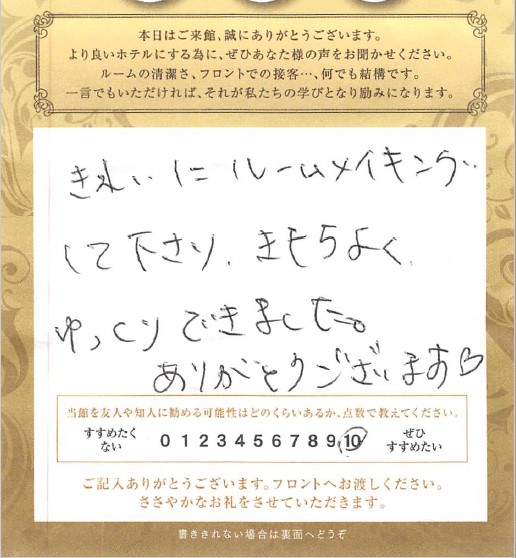 本日はご来館、誠にありがとうございます。
より良いホテルにする為に、ぜひあなた様の声をお聞かせください。
ルームの清潔さ、フロントでの接客…、何でも結構です。
一言でもいただければ、それが私たちの学びとなり励みになります。
きれいにルームメイキング
して下さり、きもちよく
ゆっくりできました。
ありがとうございます♡
当館を友人や知人に勧める可能性はどのくらいあるか、点数で教えてください。
すすめたくない 0 1 2 3 4 5 6 7 8 9 10 ぜひすすめたい
ご記入ありがとうございます。フロントへお渡しください。
ささやかなお礼をさせていただきます。
書ききれない場合は裏面へどうぞ